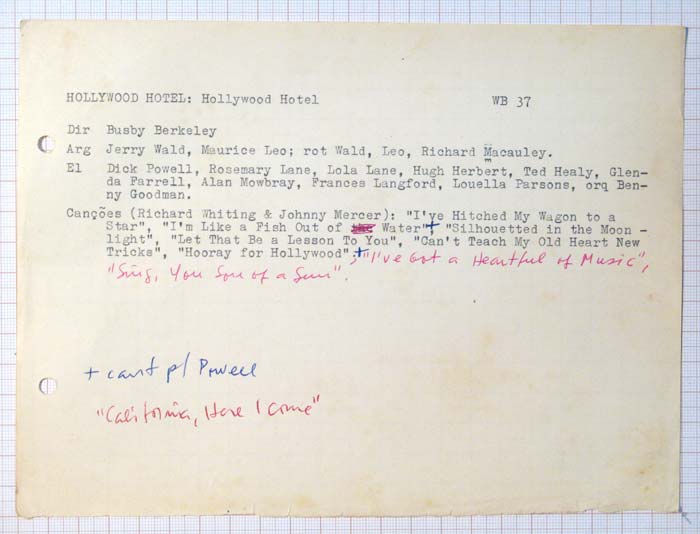 HOLLYWOOD HOTEL: Hollywood Hotel WB 37
Dir Busby Berkeley
Arg Jerry Wald, Maurice Leo; rot Wald, Leo, Richard Macauley.
El Dick Powell, Rosemary Lane, Lola Lane, Hugh Herbert, Ted Healy, Glen-
da Farrell, Alan Mowbray, Frances Langford, Louella Parsons, orq Ben-
ny Goodman.
Canções (Richard Whiting & Johnny Mercer): "I've Hitched My Wagon to a
Star", "I'm Like a Fish Out of Water"+ "Silhouetted in the Moon -
light", "Let That Be a Lesson To You", "Can't Teach My Old Heart New
Tricks", "Hooray for Hollywood";+ "I've Got a Heartful of Music",
"Sing, You Son of a Gun".
+ cant p/ Powell
"California, Here I Come"